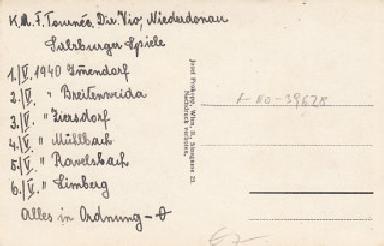 K.d.F. Tournée, Dir. Vio, Niederdonau
Salzburger Spiele
1./V. 1940 Imendorf
2./V. " Breitenweida
3./V. " Ziersdorf
4./V. " Mühlbach
5./V. " Ravelsbach
6./V. " Limberg
Alles in Ordnung -
Josef Prokopp, Wien,
Nachdruck verboten.